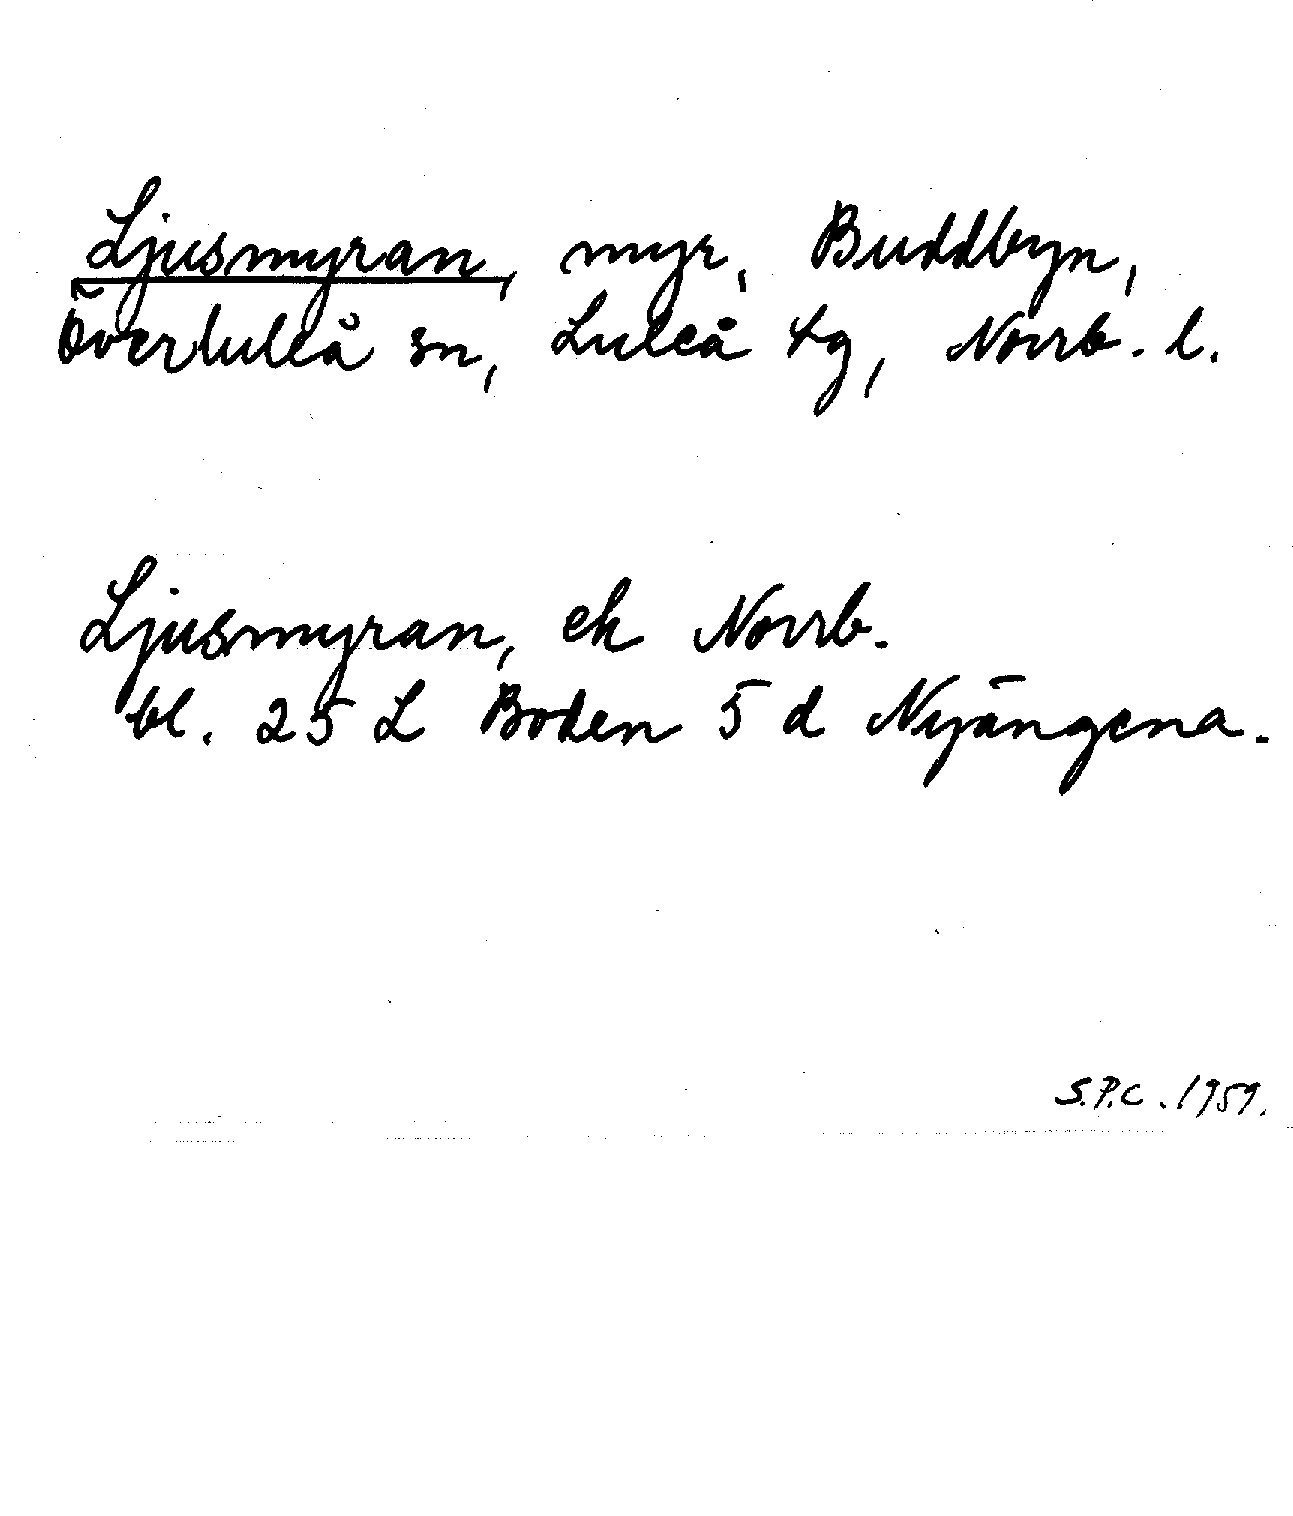 Ljusmyran, myr, Buddbyn,
Överluleå sn, Luleå tg, Norrb. l.
Ljusmyran, ek Norrb.
bl. 25 L Boden 5 d Nyängena.
S.P.C. 1959.